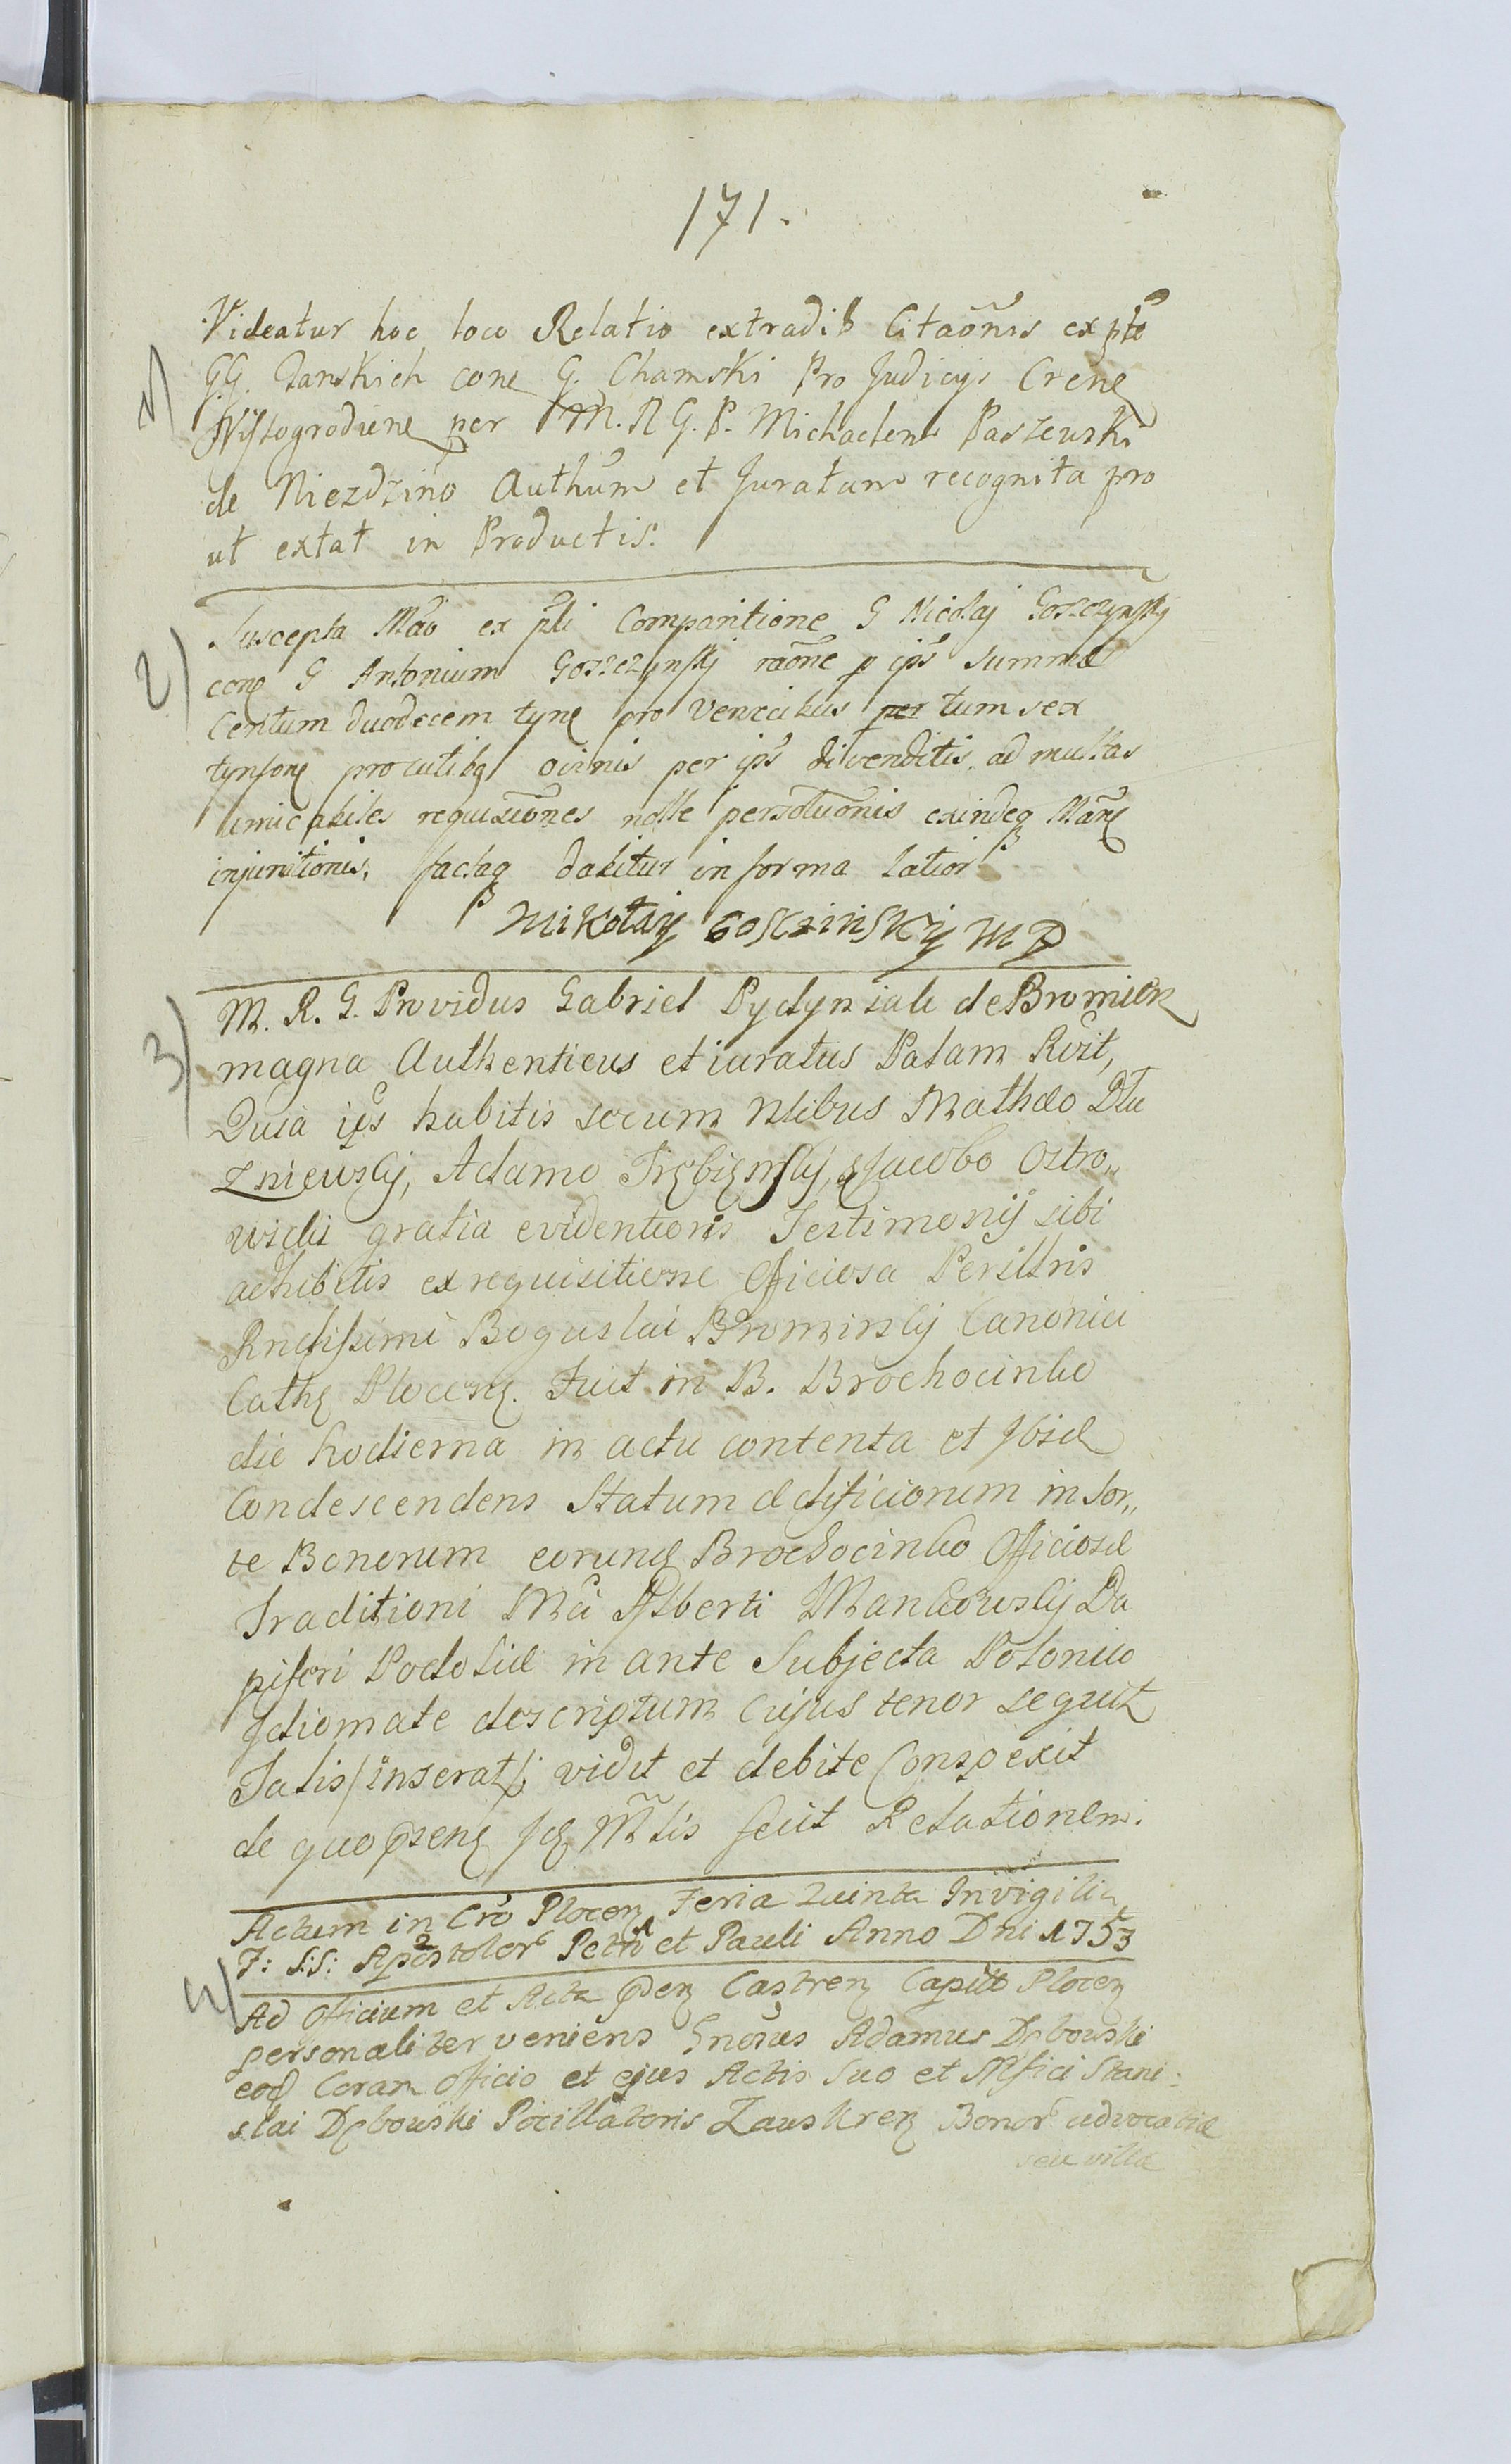 171.
Videatur hoc loco Relatio extradit Citaõnis ex pto
1)
GG. Danskich cone G. Chamski Pro Judicijs Crene
Wyssogrodiene per M. R G. P. Michaelem Paszewski
de Niezdzino Authum et Juratum recognita pro
ut extat in Productis.
2)
Suscepta Mão ex pti Comparitione G Nicolaj Goszczynskj
cone G Antonium Goszczynskj raõne p ips summæ
Centum duodecem tyne pro per tum sex
tynfone procutibq ovinis per ips divenditis ad multas
amicabiles requisiõnes nolle persoluõnis exindeq Mãne
injunitionis, factaq dabitur in forma latior
Mikołay Gosczinsky MP
3)
M. R. G. Providus Gabriel de Bromierz
magna Authenticus et iuratus Palam Rvit,
Quia ips habitis secum Nlibus Mathæo Dlu
zniewskj, Adamo Trębięnskj, et Jacobo Ostro„
wskj gratia evidentioris Testimonij sibi
adhibitis ex requisitione Officiosa Perilltris
Rndissimi Boguslai Brominskj Canonici
Cathę Plocenę. Fuit in B. Brochocinko
die hodierna in actu contenta et Ibide
Condescendens Statum ædificiorum in Sor„
te Bonorum eorundę Brochocinko Officiosæ
Traditioni Mci Alberti Mankowskj Da
piferi Podoliæ in ante Subjecta Polonico
Idiomate descriptum Cujus tenor sequitz
Talis /:inserat:/ vidit et debite Conspexit
de quo psenę Ms tis fecit Relationem.
Actum in Cro Plocen Feria Quinta In vigilia
F: S:S: Apostolor Petri et Pauli Anno Dni 1753
4)
Ad Officium et Acta pden Castren Capitt Plocen
personaliter veniens Gnosus Adamus Dębowski
eod Coram Officio et ejus Actis Suo et Mfici Stani:
slai Dębowski Pocillatoris Zauskren Bonor advocatiæ
seu villæ